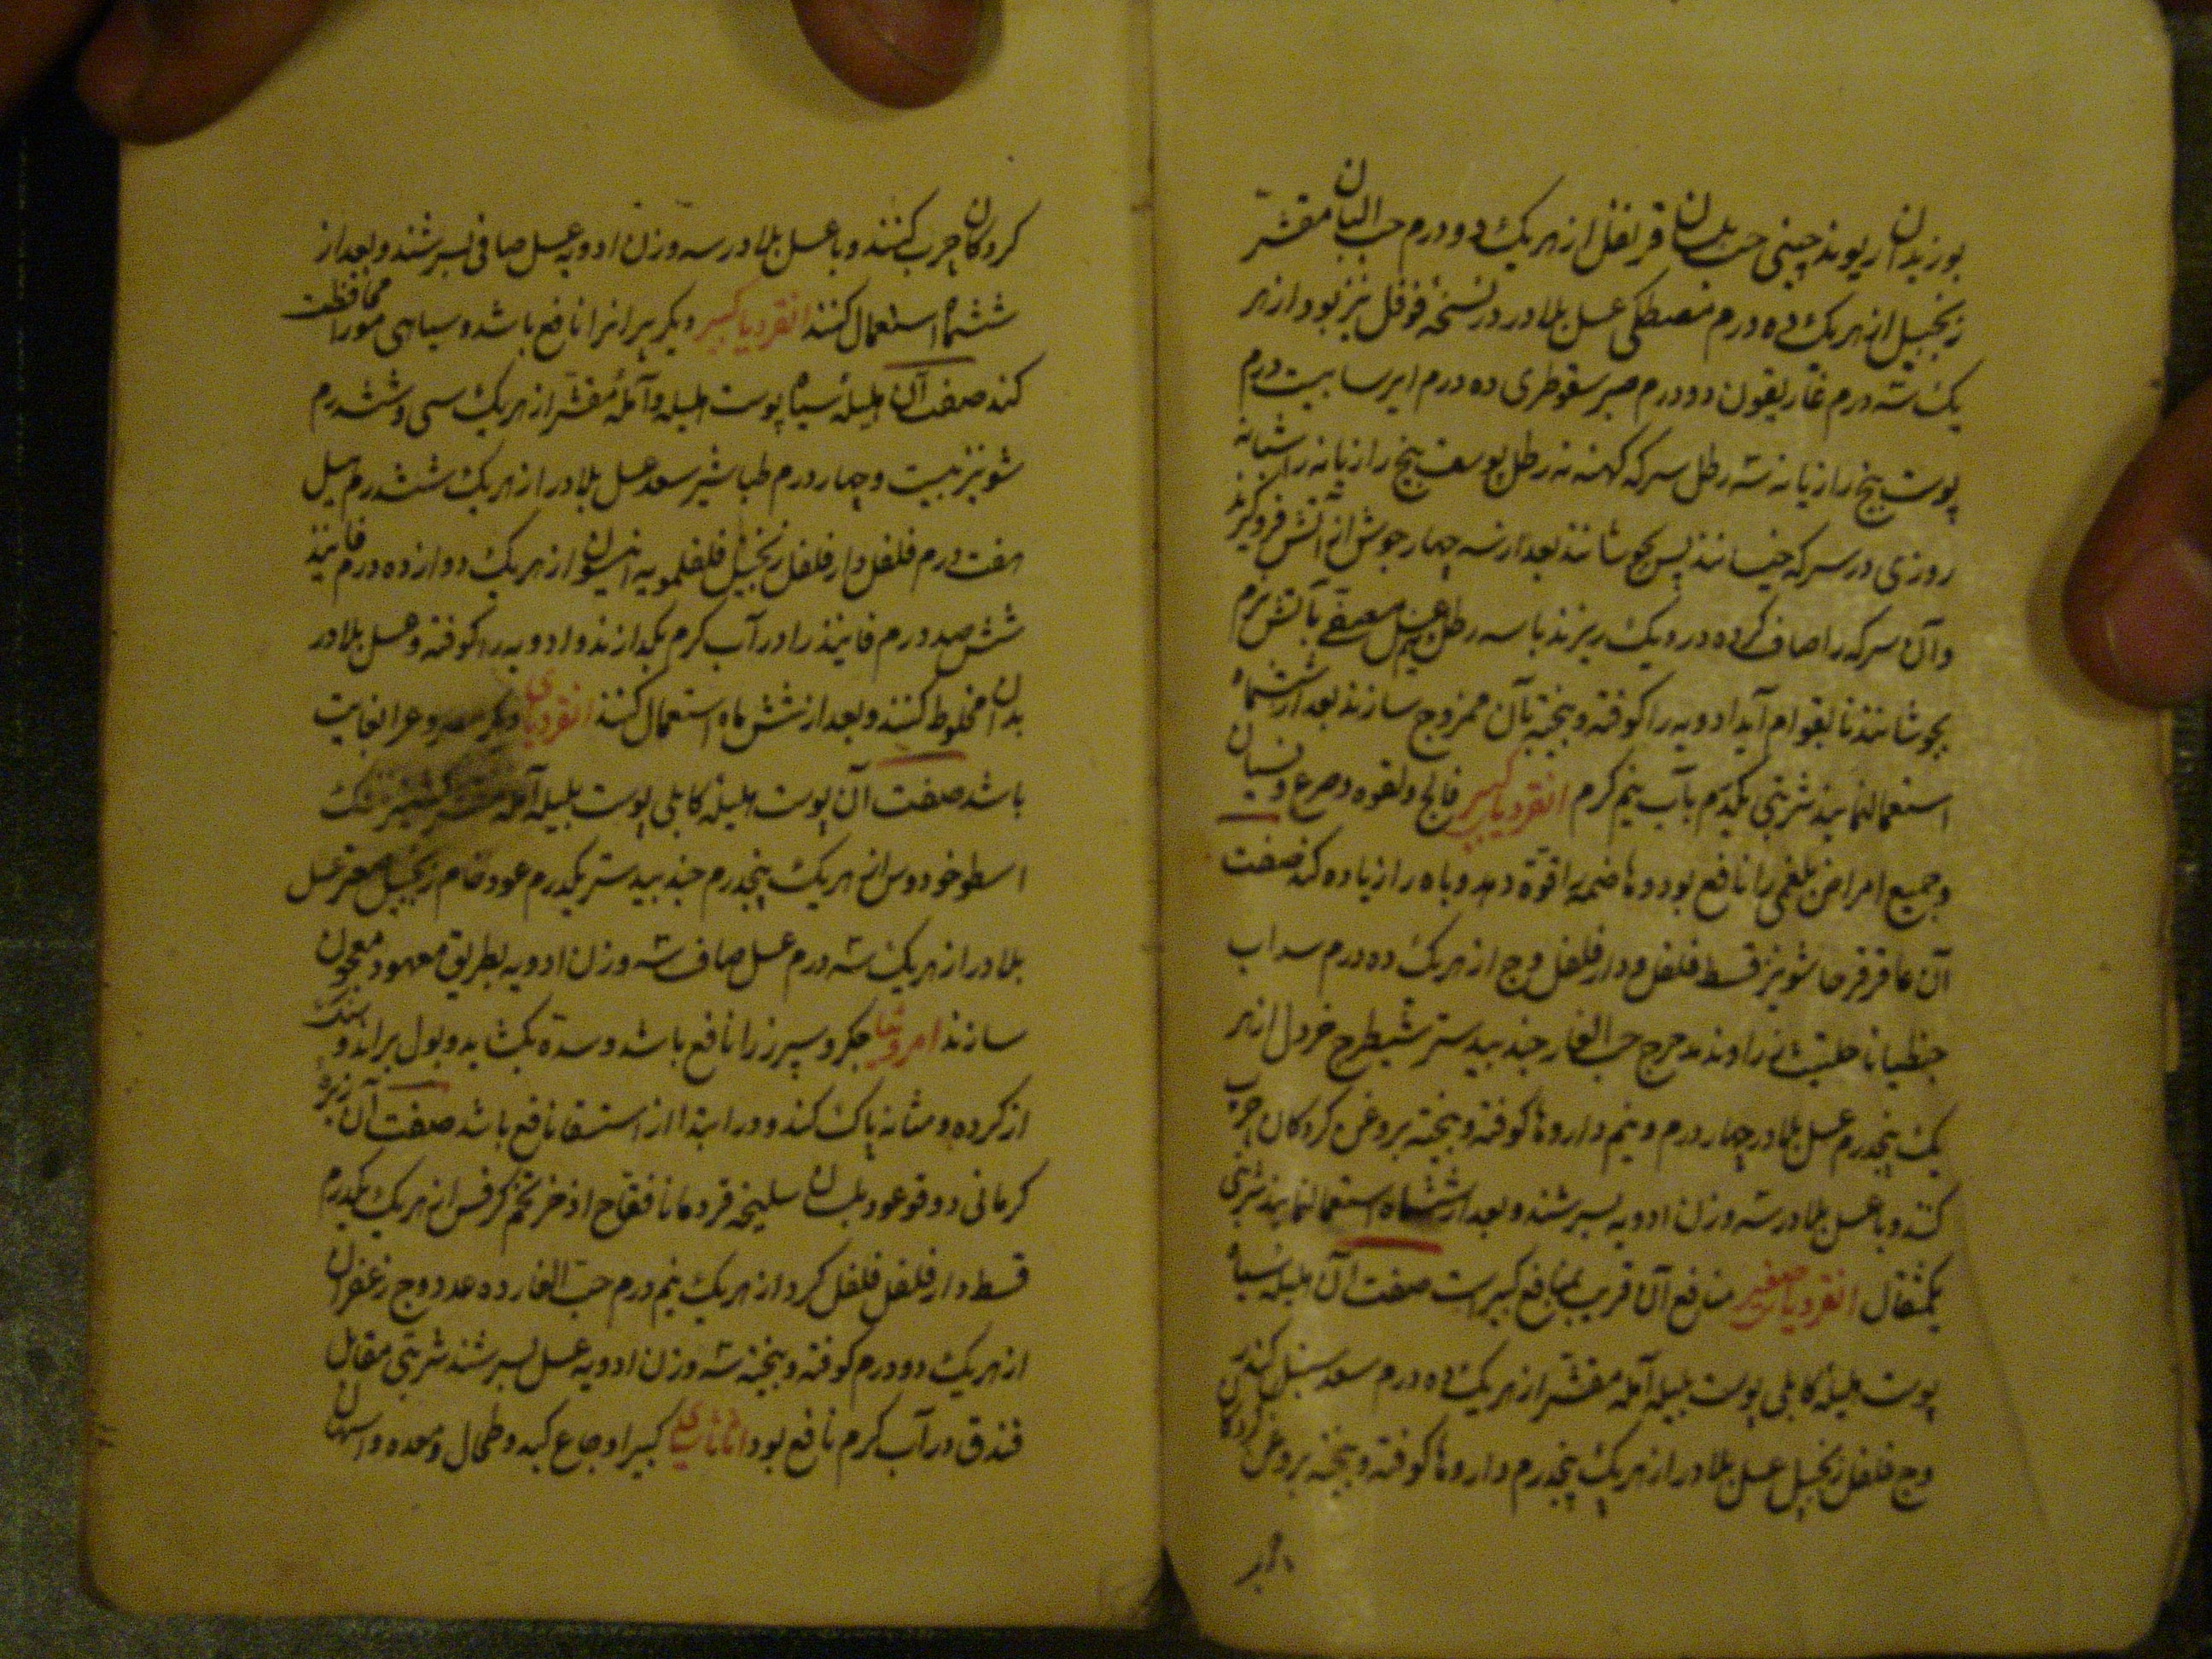 بوزیدان ریوند چینی حب بلسان قرنفل از هریک دو درم حب البان مقشر
زنجبیل از هریک ده درم مصطکی عسل بلادر در نسخهٔ فوفل نیز بود از هر
یک سه درم غاریقون دو درم صبر سقوطری ده درم ایرسا بیست درم
پوست بیخ رازیانه سه رطل سرکه کهنه نه رطل پوست بیخ رازیانه را شبانه
روزی در سرکه خیسانند پس بجوشانند بعد از سه چهار جوش از آتش فروگیرند
و آن سرکه را صاف کرده در دیک ریزند با سه رطل عسل مصفی بآتش نرم
بجوشانند تا بقوام آید ادویه را کوفته و بیخته بآن ممزوج سازند بعد از ششماه
استعمال نمایند شربتی یکدرم بآب نیم کرم انقردیا کبیر فالج و لقوه و صرع و نسیان
و جمیع امراض بلغمی را نافع بود و هاضمه را قوة دهد و باه را زیاده کند صفت
آن عاقرقرحا شونیز قسط فلفل و دارفلفل وج از هریک ده درم سداب
جنطیانا حلتیت زراوند مدحرج حب الغار جندبیدستر شیطرج خردل از هر
یک پنجدرم عسل بلادر چهار درم و نیم داروها کوفته و بیخته بروغن کردکان چرب
کنند و با عسل بلادر سه وزن ادویه بسرشند و بعد از ششماه استعمال نمایند شربتی
یکمثقال انقردیا صغیر منافع آن قریب بمنافع کبیر است صفت آن هلیله سیاه
پوست هلیله کابلی پوست بلیله آمله مقشر از هریک ده درم سعد سنبل کندر
وج فلفل زنجبیل عسل بلادر از هریک پنجدرم داروها کوفته و بیخته بروغن کردکان
کردکان چرب کنند و با عسل بلادر سه وزن ادویه عسل صافی بسرشند و بعد از
ششماه استعمال کنند انقردیا کبیر دیگر پیرانرا نافع باشد و سیاهی مو را محافظت
کند صفت آن هلیله سیاه پوست هلیله و آمله مقشر از هریک سی و ششدرم
شونیز بیست و چهار درم طباشیر سعد عسل بلادر از هریک ششدرم هیل
هفت درم فلفل دارفلفل زنجبیل فلفلمویه انیسون از هریک دوازده درم فانیذ
شش صد درم فانیذ را در آب کرم بکدازند و ادویه را کوفته و عسل بلادر
بدان مخلوط کنند و بعد از شش ماه استعمال کنند انقردیای دیگر مصروعرا بغایت
باشد صفت آن پوست هلیله کابلی پوست بلیله آمله کشنیز خشک
اسطوخودوس از هریک پنجدرم جندبیدستر یکدرم عود خام زنجبیل صعتر عسل
بلادر از هریک سه درم عسل صاف سه وزن ادویه بطریق معهود معجون
سازند امروسیا جکر و سپرز را نافع باشد و سدة بکشاید و بول براند و سنک
از کرده و مثانه پاک کند و در ابتدا از استسقا نافع باشد صفت آن زیره
کرمانی دوقو عود بلسان سلیخه قردمانا فقاح اذخر تخم کرفس از هریک یکدرم
قسط دارفلفل فلفل کرد از هریک نیم درم حب الغار ده عدد وج زعفران
از هریک دو درم کوفته و بیخته سه وزن ادویه عسل بسرشند شربتی مقابل
فندق در آب کرم نافع بود اثاناسیای کبیر اوجاع کبد و طحال و معده و اسهال